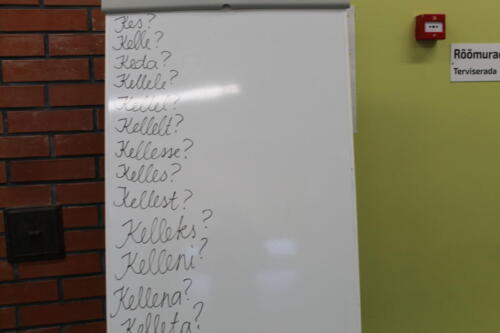 Kes?
Kelle?
Keda?
Kellele?
Kellel?
Kellelt?
Kellesse?
Kelles?
Kellest?
Kelleks?
Kelleni?
Kellena?
Kelleta?
Terviserada